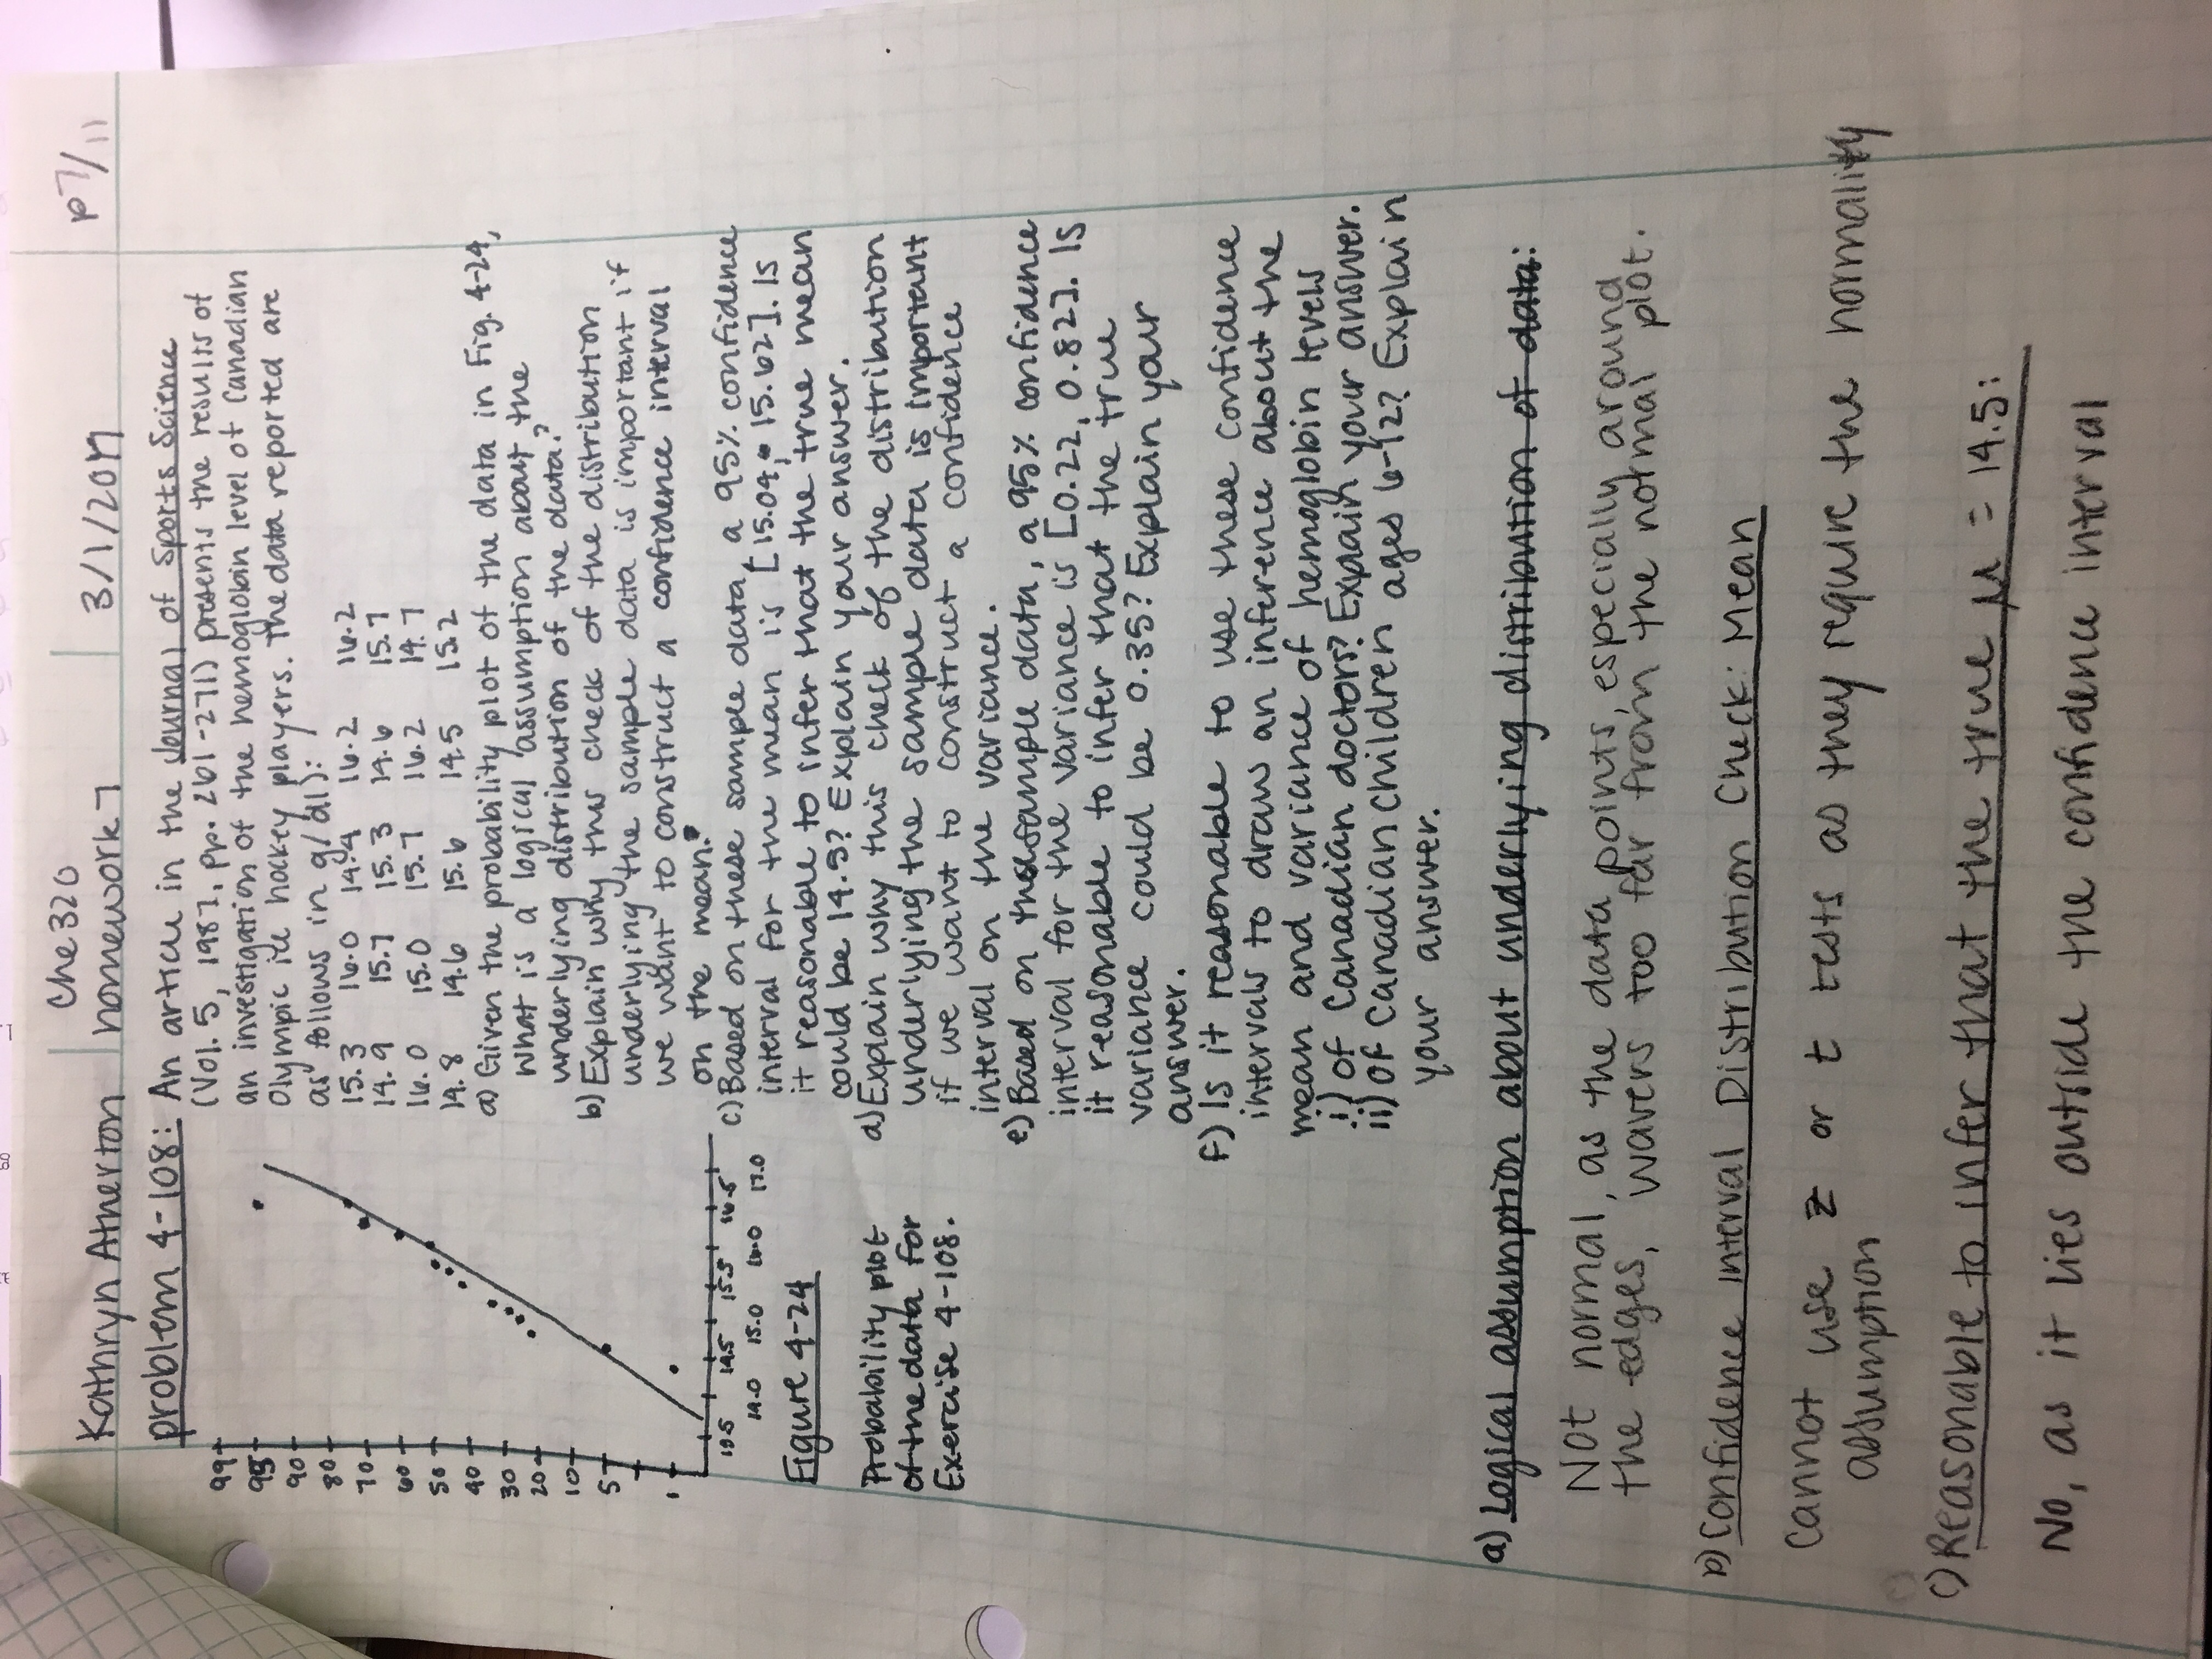 Che 320
Kathryn Atherton homework 7 3/1/2017 p7/11
problem 4-108: An article in the Journal of Sports Science
(Vol. 5, 1987, pp. 261-271) presents the results of
an investigation of the hemoglobin level of Canadian
Olympic ice hockey players. The data reported are
as follows in g/dl):
15.3 16.0 14.4 16.2 16.2
14.9 15.7 15.3 14.6 15.7
16.0 15.0 15.7 16.2 14.7
14.8 14.6 15.6 14.5 15.2
a) Given the probability plot of the data in Fig. 4-24,
what is a logical assumption about the
underlying distribution of the data?
b) Explain why this check of the distribution
underlying the sample data is important if
we want to construct a confidence interval
on the mean.
c) Based on these sample data, a 95% confidence
interval for the mean is [15.04, 15.62]. Is
it reasonable to infer that the true mean
could be 14.5? Explain your answer.
d) Explain why this check of the distribution
underlying the sample data is important
if we want to construct a confidence
interval on the variance.
e) Based on these sample data, a 95% confidence
interval for the variance is [0.22, 0.82]. Is
it reasonable to infer that the true
variance could be 0.35? Explain your
answer.
f) Is it reasonable to use these confidence
intervals to draw an inference about the
mean and variance of hemoglobin levels
i) of Canadian doctors? Explain your answer.
ii) of Canadian children ages 6-12? Explain
your answer.
99
95
90
80
70
60
50
40
30
20
10
5
1
13.5 14.5 15.5 16.5
14.0 15.0 16.0 17.0
Figure 4-24
Probability plot
of the data for
Exercise 4-108.
a) Logical assumption about underlying distribution of data:
Not normal, as the data points, especially around
the edges, wavers too far from the normal plot.
b) Confidence Interval Distribution Check: Mean
Cannot use z or t tests as they require the normality
assumption
c) Reasonable to infer that the true μ = 14.5:
No, as it lies outside the confidence interval